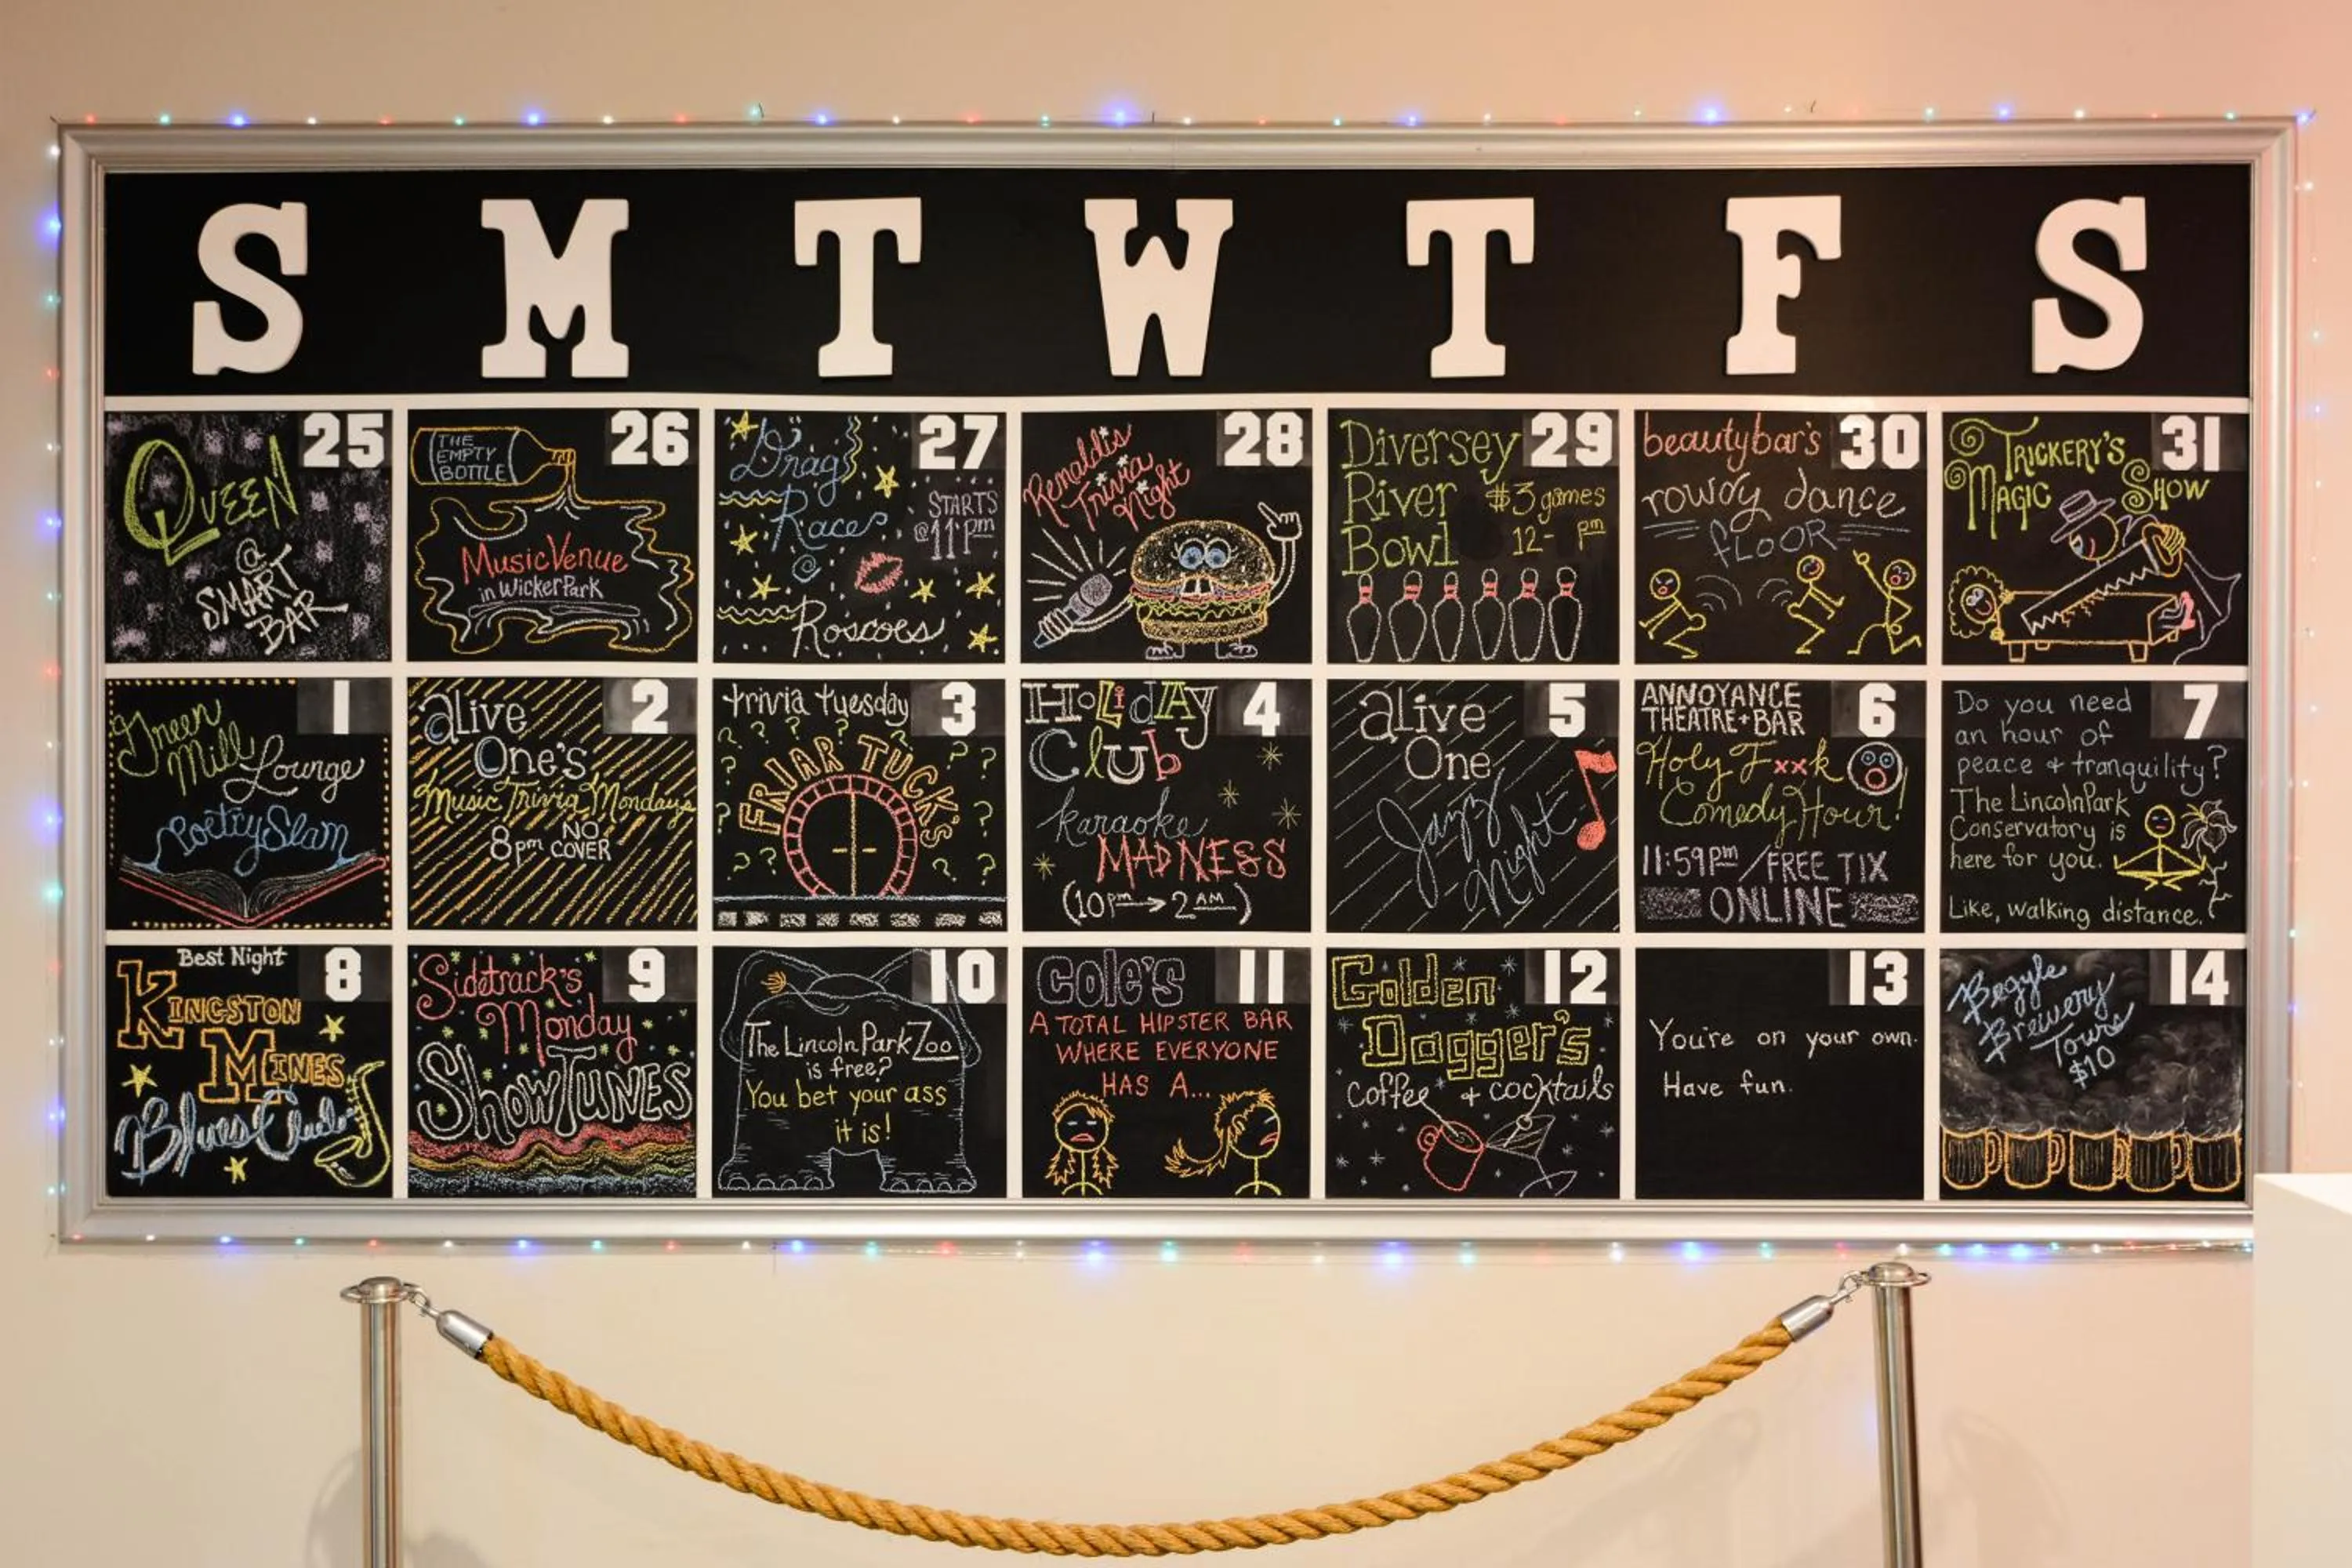 S M T W T F S
25
QUEEN
@
SMART
BAR
26
THE
EMPTY
BOTTLE
Music Venue
in Wicker Park
27
Drag
Races
STARTS
@ 11pm
@
Roscoes
28
Renaldi's
Trivia
Night
29
Diversey
River
Bowl
$3 games
12- pm
30
beautybar's
rowdy dance
FLOOR
31
TRICKERY'S
MAGIC SHOW
1
Green
Mill Lounge
Poetry Slam
2
alive
One's
Music Trivia Mondays
8pm NO COVER
3
trivia tuesday
FRIAR TUCK'S
4
HoLidAy
CLUb
karaoke
MADNESS
(10pm → 2AM)
5
alive
One
Jazz
Night
6
ANNOYANCE
THEATRE + BAR
Holy Fxxk
Comedy Hour!
11:59pm / FREE TIX
ONLINE
7
Do you need
an hour of
peace + tranquility?
The Lincoln Park
Conservatory is
here for you.
Like, walking distance.
8
Best Night
KINGSTON
MINES
Blues Club
9
Sidetrack's
Monday
SHOWTUNES
10
The Lincoln Park Zoo
is free?
You bet your ass
it is!
11
COLE'S
A TOTAL HIPSTER BAR
WHERE EVERYONE
HAS A...
12
Golden
Dagger's
coffee + cocktails
13
You're on your own.
Have fun.
14
Begyle
Brewery
Tours
$10